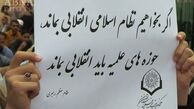 اگر بخواهیم نظام اسلامی انقلابی بماند
حوزه های علمیه باید انقلابی بماند
مقام معظم رهبری